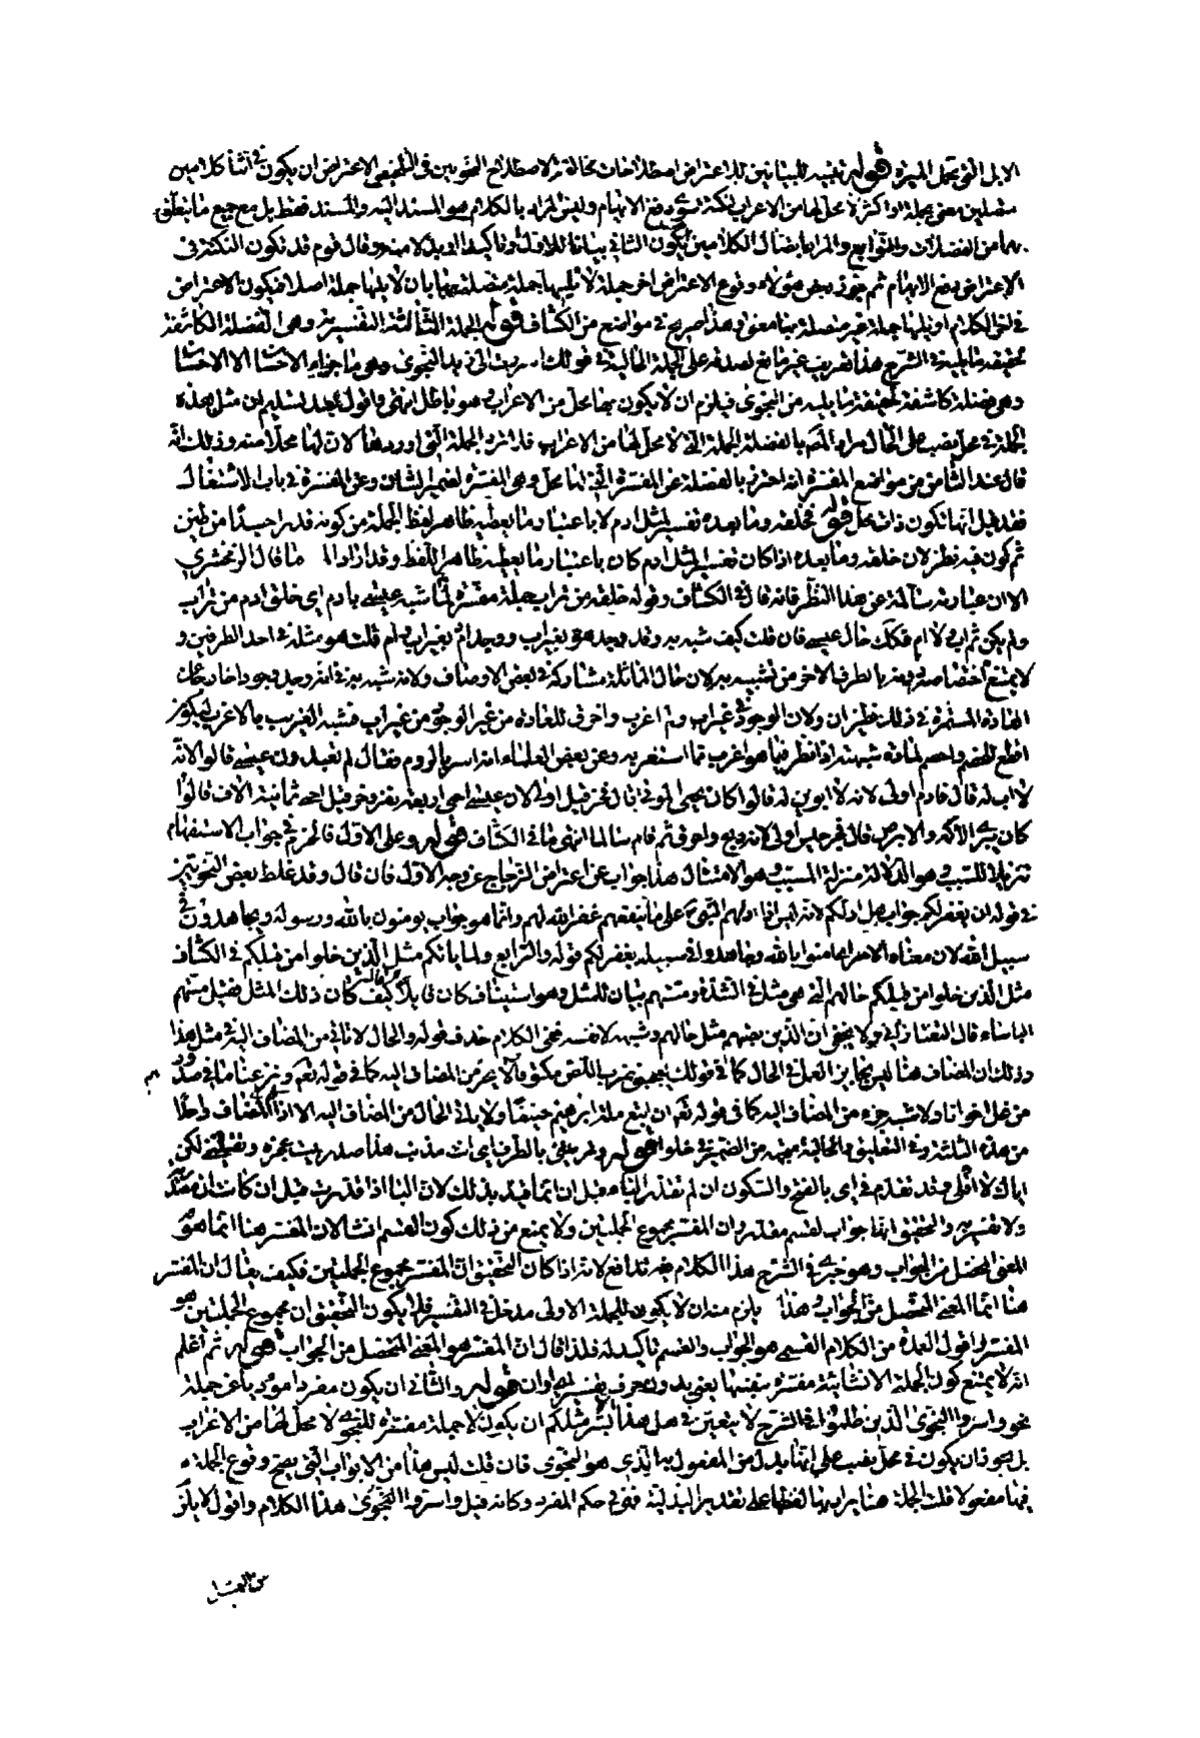 الابل التي تحمل الميرة قوله تنبيه للبيانيين في الاعتراض اصطلاحات مخالفة لاصطلاح النحويين في التلخيص الاعتراض ان يكون في اثنا كلامين
متصلين معنى بجملة او اكثر لا محل لها من الاعراب لنكتة سوى دفع الابهام وليس المراد بالكلام هو المسند اليه والمسند فقط بل مع جميع ما يتعلق
بهما من الفضلات والتوابع والمراد باتصال الكلامين ان يكون الثاني بيانا للاول او تاكيدا او بدلا منه وقال قوم قد تكون النكتة في
الاعتراض دفع الابهام ثم جوز بعض هؤلاء وقوع الاعتراض اخر جملة لا تليها جملة متصلة بها بان لا يليها جملة اصلا فيكون الاعتراض
في اخر الكلام او يليها جملة غير متصلة بها معنى وهذا صريح في مواضع من الكشاف قوله الجملة الثالثة التفسيرية وهي الفضلة الكاشفة
لحقيقة ما تليه في الشرح هذا تعريف غير مانع لصدقه على الجملة الحالية في قولك اسررت الى زيد النجوى وهي ما جزاء الاحسان الا الاحسان
وهي فضلة كاشفة لحقيقة ما تليه من النجوى فيلزم ان لا يكون لها محل من الاعراب وهو باطل انتهى واقول بعد تسليم ان مثل هذه
الجملة في محل نصب على الحال مراد المص بالفضلة الجملة التي لا محل لها من الاعراب فلا ترد الجملة التي اوردها لان لها محلا منه وذلك انه
قال عند الثامن من مواضع المفسرة انه احترز بالفضلة عن المفسرة التي لها محل وهي المفسرة لضمير الشان وعن المفسرة في باب الاشتغال
فقد قيل انها تكون ذات محل قوله فخلقه وما بعده تفسير لمثل ادم لا باعتبار ما يعطيه ظاهر لفظ الجملة من كونه قدر جسدا من طين
ثم كون فيه نظر لان خلقه وما بعده اذا كان تفسيرا لمثل ادم كان باعتبار ما يعطيه ظاهر اللفظ وقد اراد ما قال الزمخشري
الا ان عبارته سالمة عن هذا النظر فانه قال في الكشاف وقوله خلقه من تراب جملة مفسرة لما شبه عيسى بادم اي خلق ادم من تراب
ولم يكن ثم اب ولا ام فكذلك حال عيسى فان قلت كيف شبه به وقد وجد هو بغير اب ووجد ادم بغير اب وام قلت هو مثله في احد الطرفين و
لا يمنع اختصاصه دونه بالطرف الاخر من تشبيهه به لان المماثلة مشاركة في بعض الاوصاف ولانه شبه به في انه وجد وجودا خارجا عن
العادة المستمرة وهما في ذلك نظيران ولان الوجود من غير اب وام اغرب واخرق للعادة من الوجود من غير اب فشبه الغريب بالاغرب ليكون
اقطع للخصم واحسم لمادة شبهته اذا نظر فيما هو اغرب مما استغربه وعن بعض العلماء انه اسر بالروم فقال لم تعبدون عيسى قالوا لانه
لا اب له قال فادم اولى لانه لا ابوين له قالوا كان يحيى الموتى قال فحزقيل اولى لان عيسى احيى اربعة نفر وحزقيل احيى ثمانية الاف قالوا
كان يبرئ الاكمه والابرص قال فجرجيس اولى لانه طبخ واحرق ثم قام سالما انتهى ما في الكشاف قوله وعلى الاول فالجزم في جواب الاستفهام
تنزيلا للسبب وهو الدلالة منزلة المسبب وهو الامتثال هذا جواب عن اعتراض الزجاج عن وجه الاول فان قال وقد غلط بعض النحويين
في قوله ان يغفر لكم جواب هل ادلكم لانه ليس اذا دلهم النبي على ما ينفعهم غفر الله لهم وانما هو جواب يؤمنون بالله ورسوله ويجاهدون في
سبيل الله لان معناه الامر اي امنوا بالله وجاهدوا في سبيله يغفر لكم قوله والرابع ولما ياتكم مثل الذين خلوا من قبلكم في الكشاف
مثل الذين خلوا من قبلكم حالهم التي هي مثل في الشدة ومستهم بيان للمثل وهو استيناف كان قائلا قال كيف كان ذلك المثل فقيل مستهم
الباساء قال التفتازاني ولا يخفى ان الذين مستهم مثل حالهم وشبهه لا نفسه ففي الكلام حذف قوله والحال لا تاتي من المضاف اليه في مثل هذا
وذلك ان المضاف هنا ليس مما يجوز العمل في الحال كما في قولك يعجبني ضرب اللص مكتوفا ولا جزء من المضاف اليه كما في قوله تعم ونزعنا ما في صدورهم
من غل اخوانا ولا شبه جزء من المضاف اليه كما في قوله تعم ان اتبع ملة ابراهيم حنيفا ولا ياتي الحال من المضاف اليه الا اذا كان المضاف واحدا
من هذه الثلثة وفي التعليق والحالية مبنية من الضمير في خلوا قوله وترمينني بالطرف اي انت مذنب هذا صدر بيت عجزه وتقلينني لكن
اياك لا اقلي وقد تقدم في اي بالفتح والسكون
ولا تفسيرية والتحقيق انها جواب لقسم مقدر وان المفسر مجموع الجملتين ولا يمنع من ذلك كون القسم انشا لان المفسر هنا انما هو
المعنى المتحصل من الجواب وهو خبري في الشرح هذا الكلام فيه تدافع لانه اذا كان التحقيق ان المفسر مجموع الجملتين فكيف يقال ان المفسر
هنا انما المعنى المتحصل من الجواب وهذا يلزم منه ان لا يكون للجملة الاولى مدخل في التفسير فلا يكون التحقيق ان مجموع الجملتين هو
المفسر واقول العمدة من الكلام القسمي هو الجواب والقسم تاكيد له فلذا قال ان المفسر هو المعنى المتحصل من الجواب قوله ثم اعلم
انه لا يمتنع كون الجملة الانشائية مفسرة بنفسها يعني بدون حرف يفسر به وان قوله والثاني ان يكون مفردا مؤديا عن جملة
نحو واسروا النجوى الذين ظلموا في الشرح لا يتعين في هل هذا الا بشر مثلكم ان يكون لا جملة مفسرة للنجوى لا محل لها من الاعراب
بل يجوز ان يكون في محل نصب على انها بدل من المفعول به الذي هو النجوى فان قلت ليس هذا من الابواب التي يصح وقوع الجملة
فيها مفعولا قلت الجملة هنا يراد بها لفظها على تقدير البدلية فهي في حكم المفرد وكانه قيل واسروا النجوى هذا الكلام واقول لا يلزم